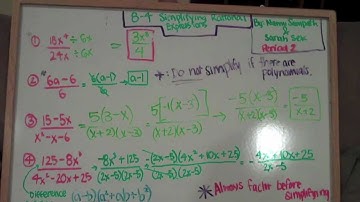 8-4 Simplifying Rational Expressions
By: Manny Sampath
&
Sarah Sek
Period 2
① 18x³ ÷ 6x / 24x ÷ 6x = 3x² / 4
② 6a-6 / 6 = 6(a-1) / 6 = a-1
* : Do not simplify if there are polynomials.
③ 15-5x / x²-x-6 = 5(3-x) / (x+2)(x-3) = 5[-1(x-3)] / (x+2)(x-3) → -5(x-3) / (x+2)(x-3) = -5 / x+2
④ 125-8x³ / 4x²-20x+25 = -8x³+125 / (2x-5)(2x-5) = -(2x-5)(4x²+10x+25) / (2x-5)(2x-5) = -4x²+10x+25 / 2x-5
Difference (a-b)(a²+ab+b²)
* Always factor before simplifying